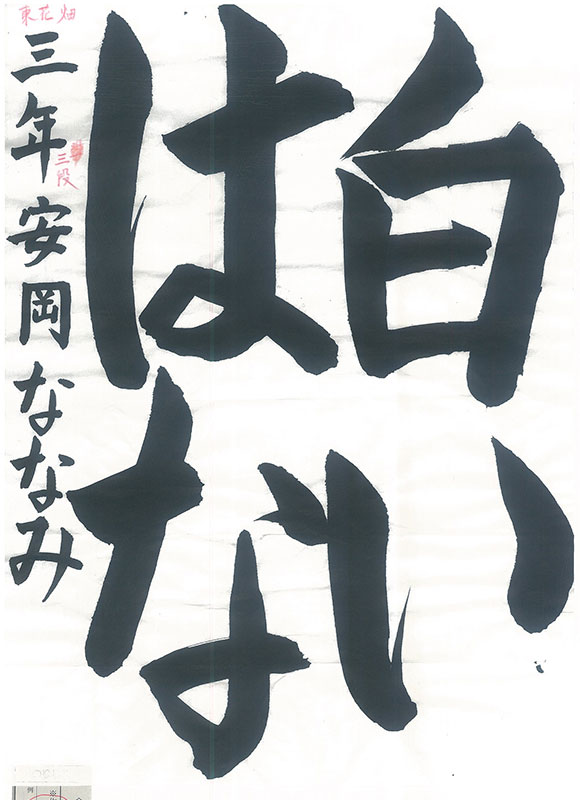 白い
はな
三年安岡ななみ
東花畑
三段